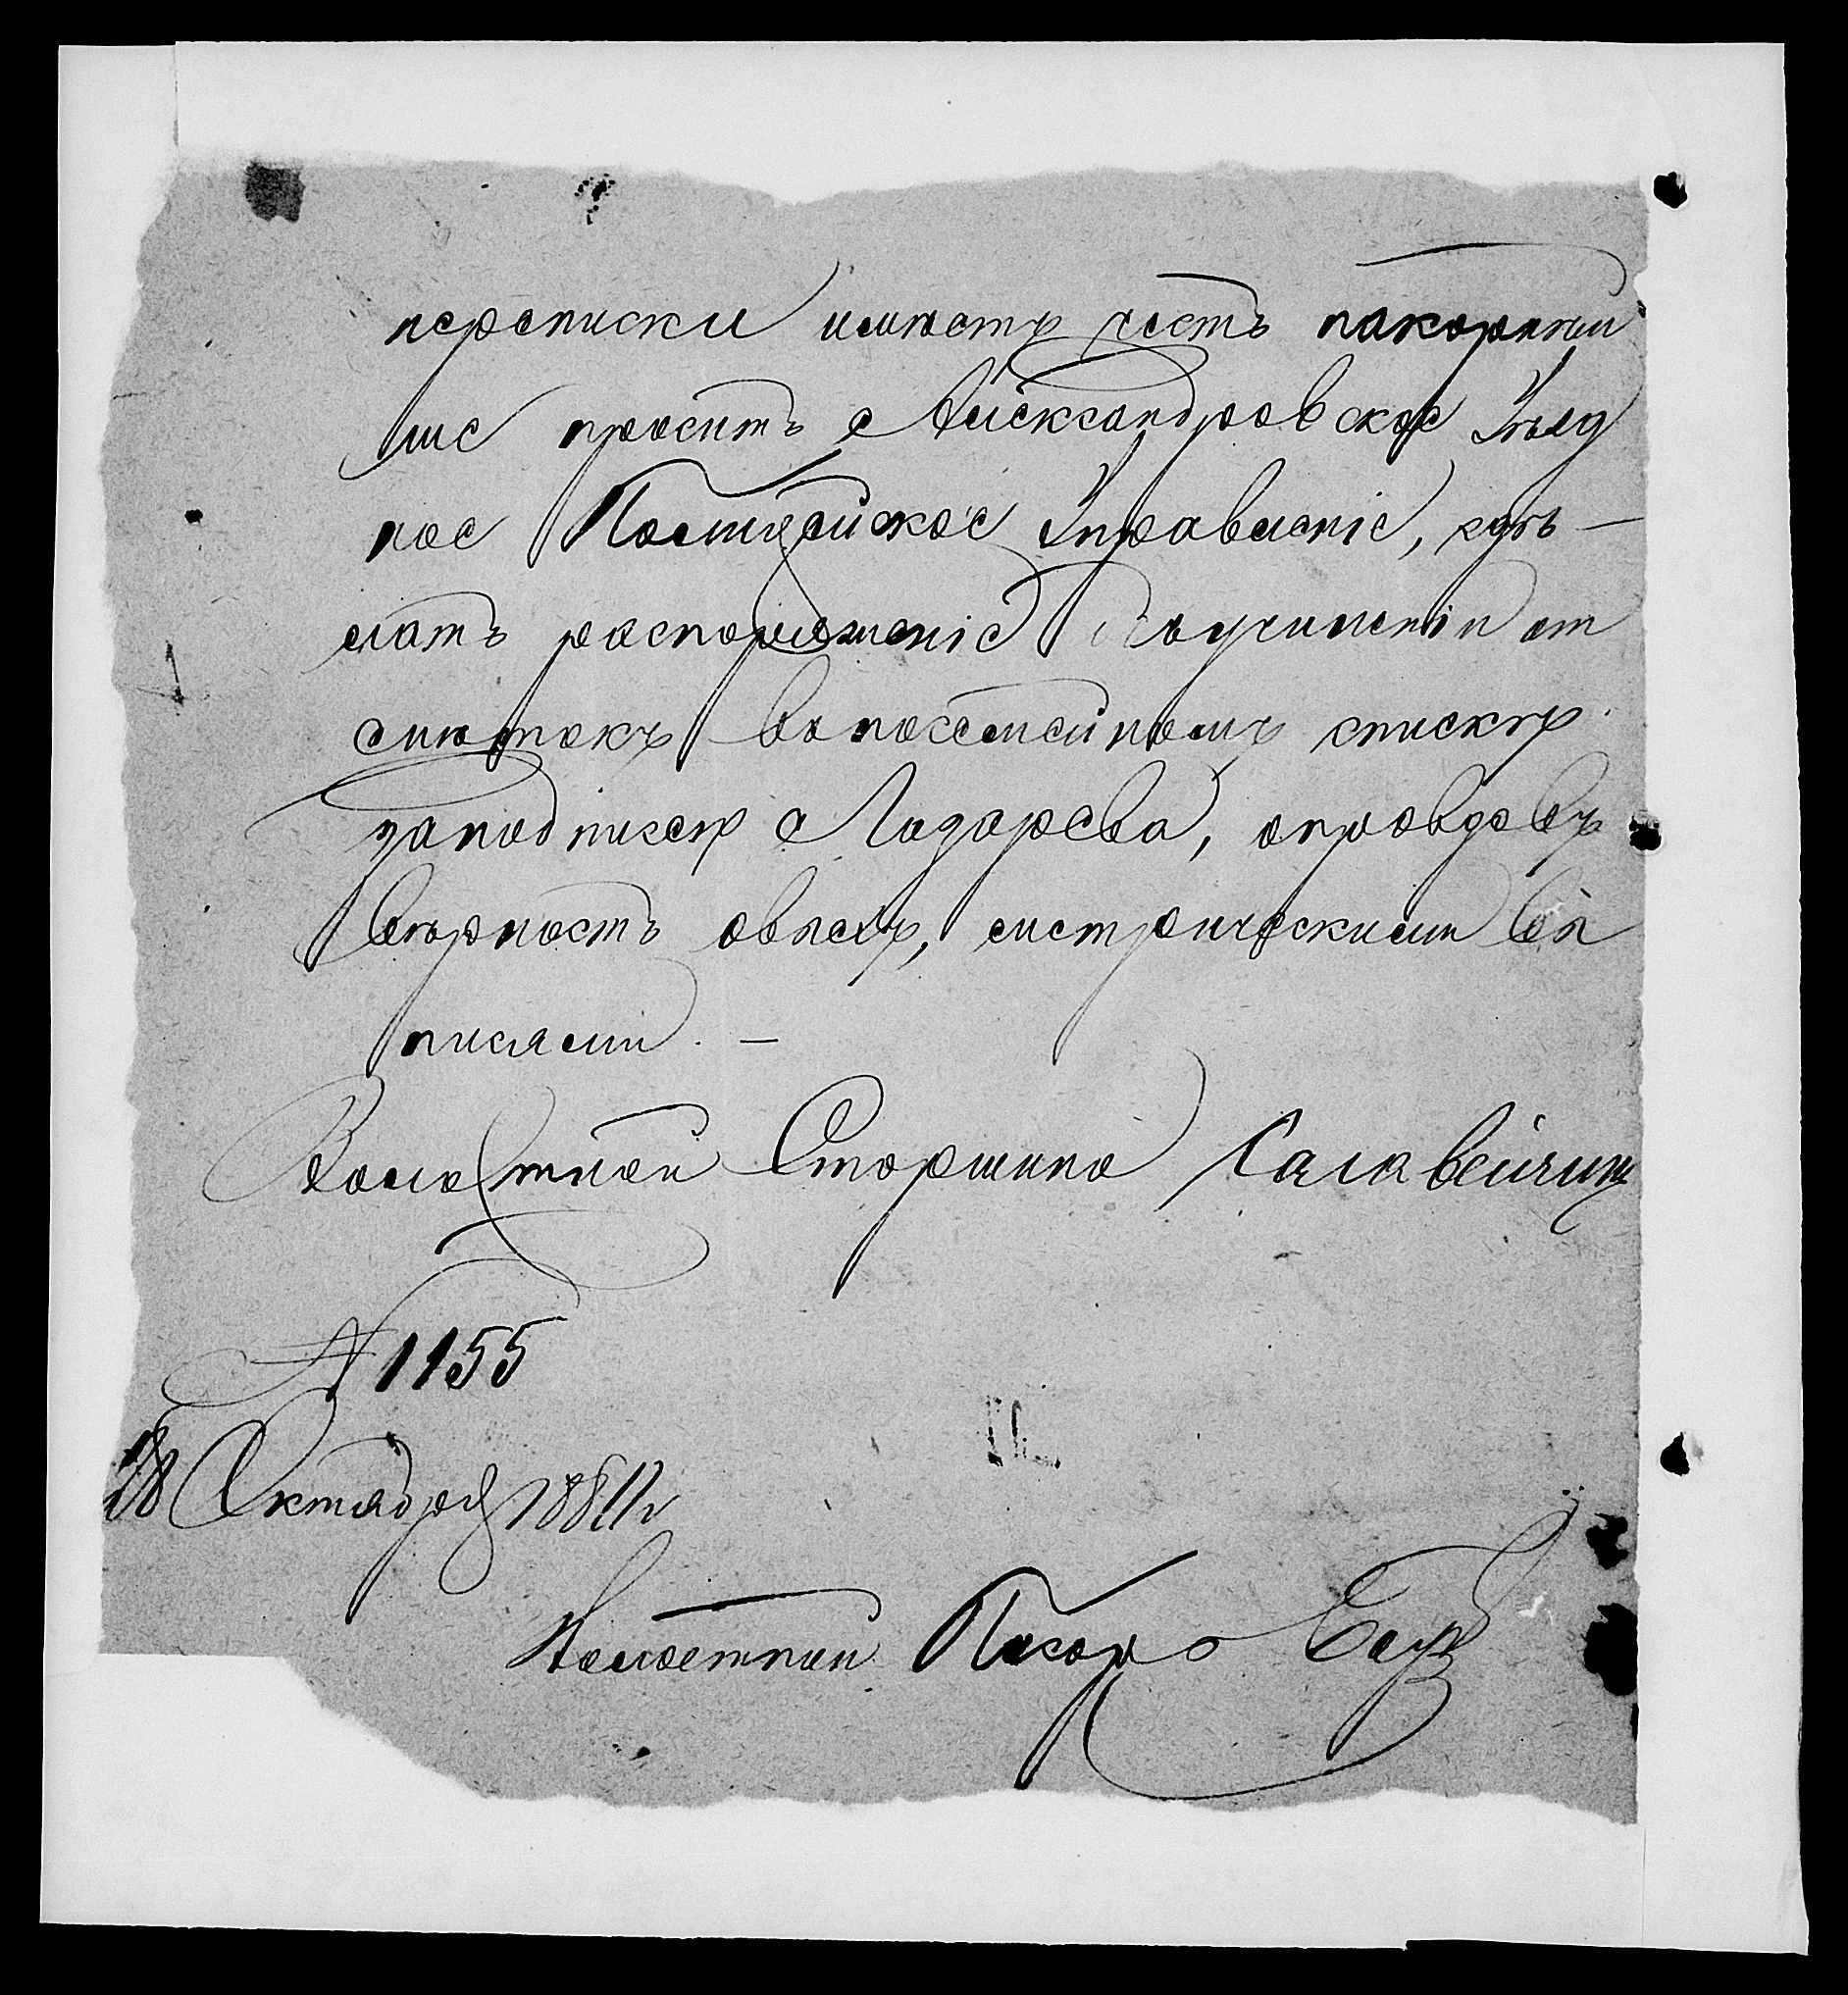 переписки имѣетъ честь пакорнѣй
ше просить Александровское Уѣзд
ное Полицейское Управленіе, сдѣ—
лать распоряженіе о учиненіи от
мѣтокъ въ посемейномъ спискѣ
Лазарева, оправдавъ
вѣрность овыхъ, метрическими вы
писями. —
Волостной Старшина
№ 1155
28 Октября 1881 г
Волостной Писарь